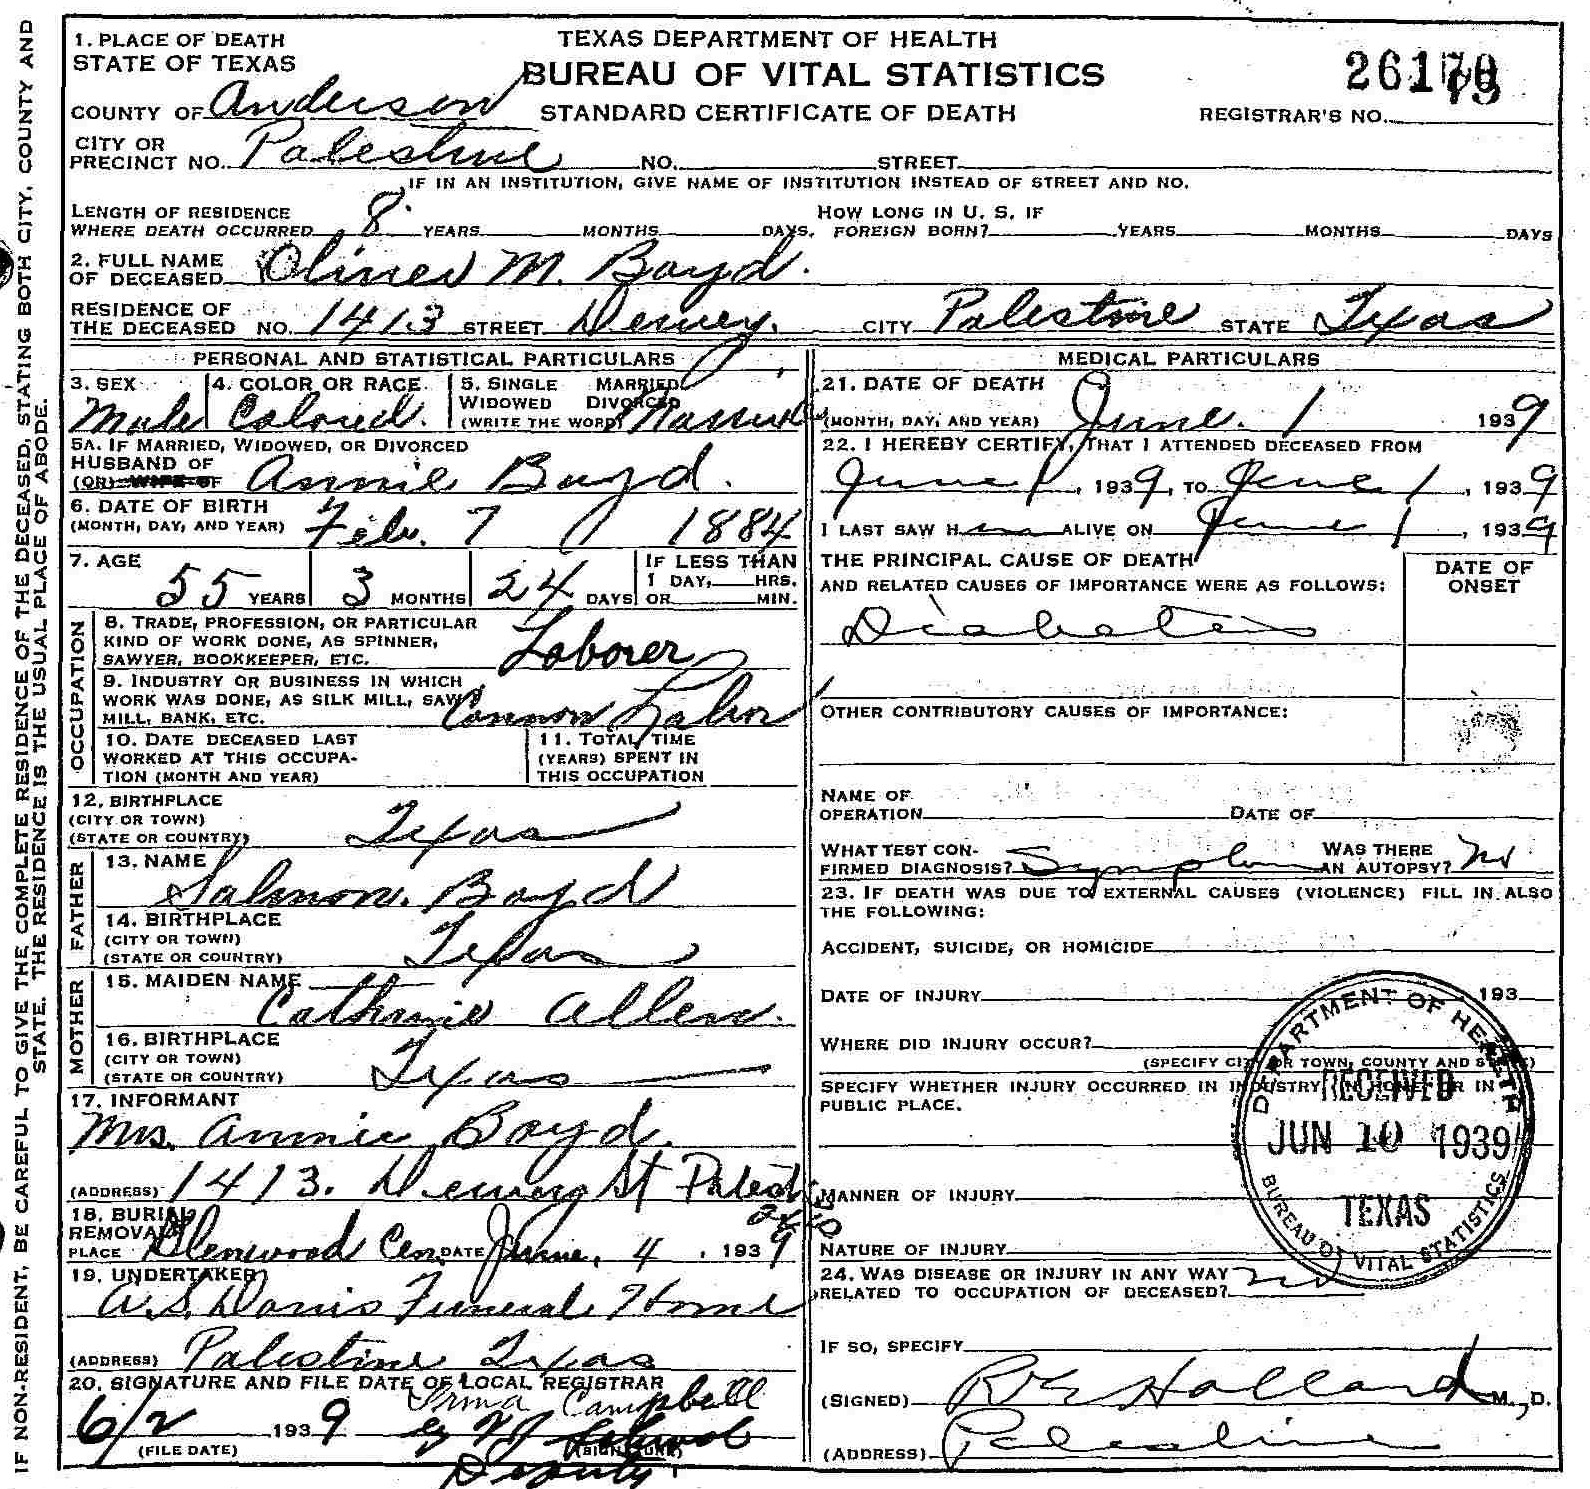 IF NON-RESIDENT, BE CAREFUL TO GIVE THE COMPLETE RESIDENCE OF THE DECEASED, STATING BOTH CITY, COUNTY AND
STATE. THE RESIDENCE IS THE USUAL PLACE OF ABODE.
TEXAS DEPARTMENT OF HEALTH
BUREAU OF VITAL STATISTICS
STANDARD CERTIFICATE OF DEATH
REGISTRAR'S NO.
1. PLACE OF DEATH
STATE OF TEXAS
COUNTY OF Anderson
CITY OR
PRECINCT NO. Palestine NO. STREET
IF IN AN INSTITUTION, GIVE NAME OF INSTITUTION INSTEAD OF STREET AND NO.
LENGTH OF RESIDENCE
WHERE DEATH OCCURRED 8 YEARS MONTHS DAYS. HOW LONG IN U. S. IF
FOREIGN BORN? YEARS MONTHS DAYS
2. FULL NAME
OF DECEASED Oliver M. Boyd.
RESIDENCE OF
THE DECEASED NO. 1413 STREET Dewey. CITY Palestine STATE Texas
PERSONAL AND STATISTICAL PARTICULARS
3. SEX
Male
4. COLOR OR RACE
Colored.
5. SINGLE MARRIED
WIDOWED DIVORCED
(WRITE THE WORD) Married
5A. IF MARRIED, WIDOWED, OR DIVORCED
HUSBAND OF
(OR) WIFE OF Annie Boyd.
6. DATE OF BIRTH
(MONTH, DAY, AND YEAR) Feb. 7 1884
7. AGE
55 YEARS 3 MONTHS 24 DAYS
IF LESS THAN
1 DAY, HRS.
OR MIN.
OCCUPATION
8. TRADE, PROFESSION, OR PARTICULAR
KIND OF WORK DONE, AS SPINNER,
SAWYER, BOOKKEEPER, ETC. Laborer
9. INDUSTRY OR BUSINESS IN WHICH
WORK WAS DONE, AS SILK MILL, SAW
MILL, BANK, ETC. Common Labor
10. DATE DECEASED LAST
WORKED AT THIS OCCUPA-
TION (MONTH AND YEAR)
11. TOTAL TIME
(YEARS) SPENT IN
THIS OCCUPATION
12. BIRTHPLACE
(CITY OR TOWN)
(STATE OR COUNTRY) Texas
FATHER
13. NAME
Salmon. Boyd
14. BIRTHPLACE
(CITY OR TOWN)
(STATE OR COUNTRY) Texas
MOTHER
15. MAIDEN NAME
Cathrine Allen.
16. BIRTHPLACE
(CITY OR TOWN)
(STATE OR COUNTRY) Texas
17. INFORMANT
Mrs. Annie Boyd.
(ADDRESS) 1413. Dewey St
18. BURIAL
REMOVAL
PLACE Glenwood Cem. DATE June. 4, 1939
19. UNDERTAKER
A.S. Davis Funeral Home
(ADDRESS) Palestine Texas
20. SIGNATURE AND FILE DATE OF LOCAL REGISTRAR
Irma Campbell
6/2 1939
(FILE DATE) (SIGNATURE)
Deputy.
MEDICAL PARTICULARS
21. DATE OF DEATH
(MONTH, DAY, AND YEAR) June. 1 1939
22. I HEREBY CERTIFY, THAT I ATTENDED DECEASED FROM
June 1, 1939, TO June 1, 1939
I LAST SAW H im ALIVE ON June 1, 1939
THE PRINCIPAL CAUSE OF DEATH
AND RELATED CAUSES OF IMPORTANCE WERE AS FOLLOWS:
DATE OF
ONSET
Diabetis
OTHER CONTRIBUTORY CAUSES OF IMPORTANCE:
NAME OF
OPERATION DATE OF
WHAT TEST CON-
FIRMED DIAGNOSIS? WAS THERE
AN AUTOPSY? No
23. IF DEATH WAS DUE TO EXTERNAL CAUSES (VIOLENCE) FILL IN ALSO
THE FOLLOWING:
ACCIDENT, SUICIDE, OR HOMICIDE
DATE OF INJURY , 193
WHERE DID INJURY OCCUR?
(SPECIFY CITY OR TOWN, COUNTY AND STATE)
SPECIFY WHETHER INJURY OCCURRED IN INDUSTRY, IN HOME, OR IN
PUBLIC PLACE.
MANNER OF INJURY
NATURE OF INJURY
24. WAS DISEASE OR INJURY IN ANY WAY
RELATED TO OCCUPATION OF DECEASED? no
IF SO, SPECIFY
(SIGNED) Holland M. D.
(ADDRESS) Palestine
DEPARTMENT OF HEALTH
RECEIVED
JUN 10 1939
TEXAS
BUREAU OF VITAL STATISTICS